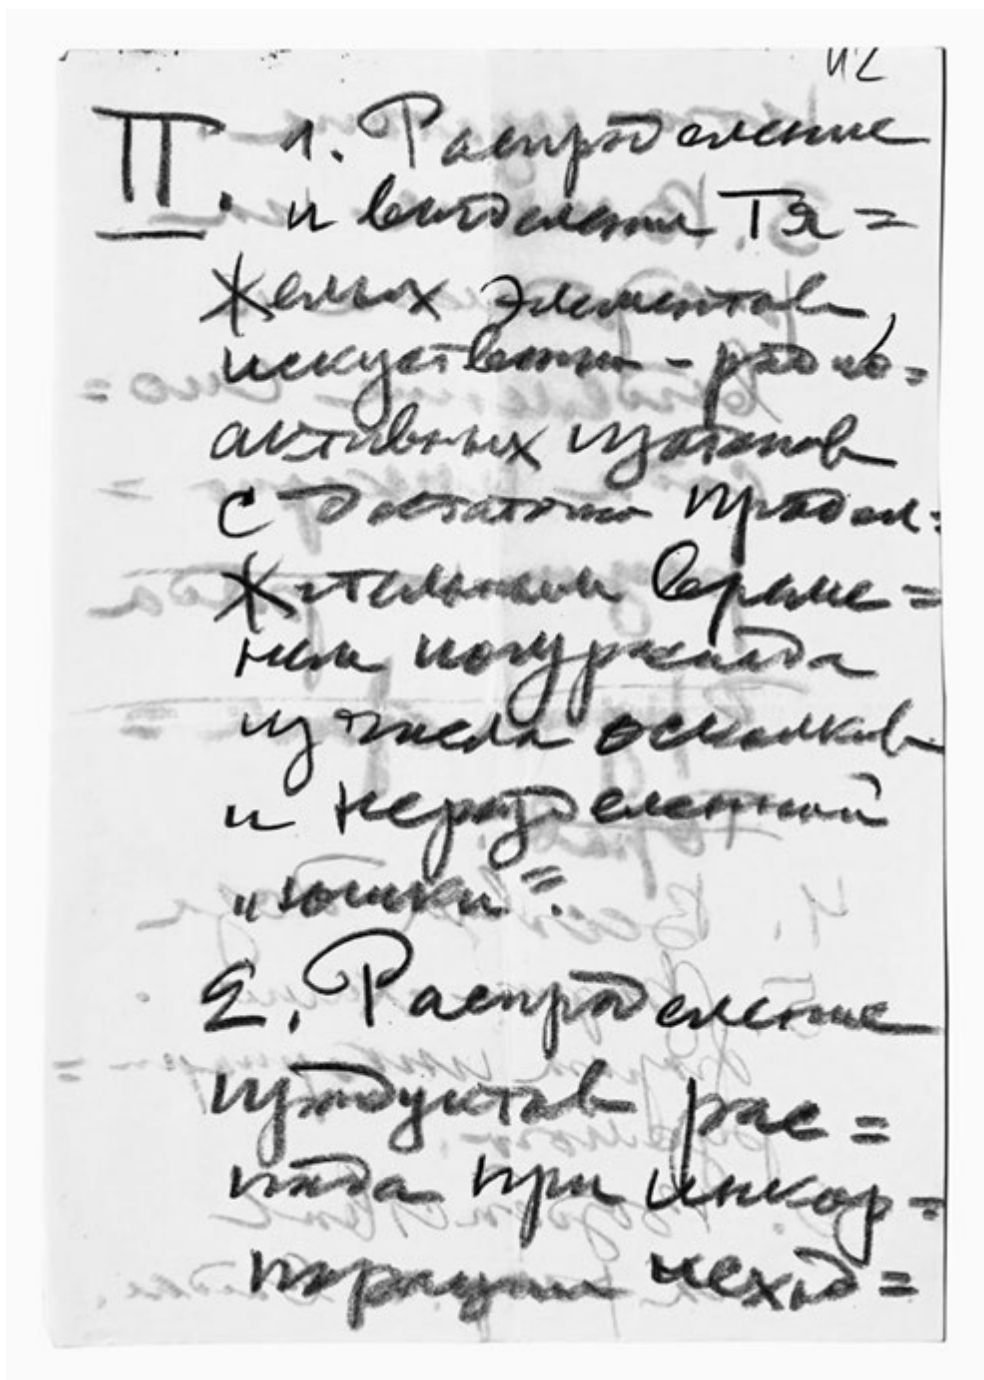 42
II. 1. Распределение
и выделение тя=
желых элементов,
искуственно-радио=
активных изотопов
с достаточно продол=
жительным време=
нем полураспада
из числа осколков
и неразделенной
„юшки".
2. Распределение
продуктов рас=
пада при инкор=
порации исход=